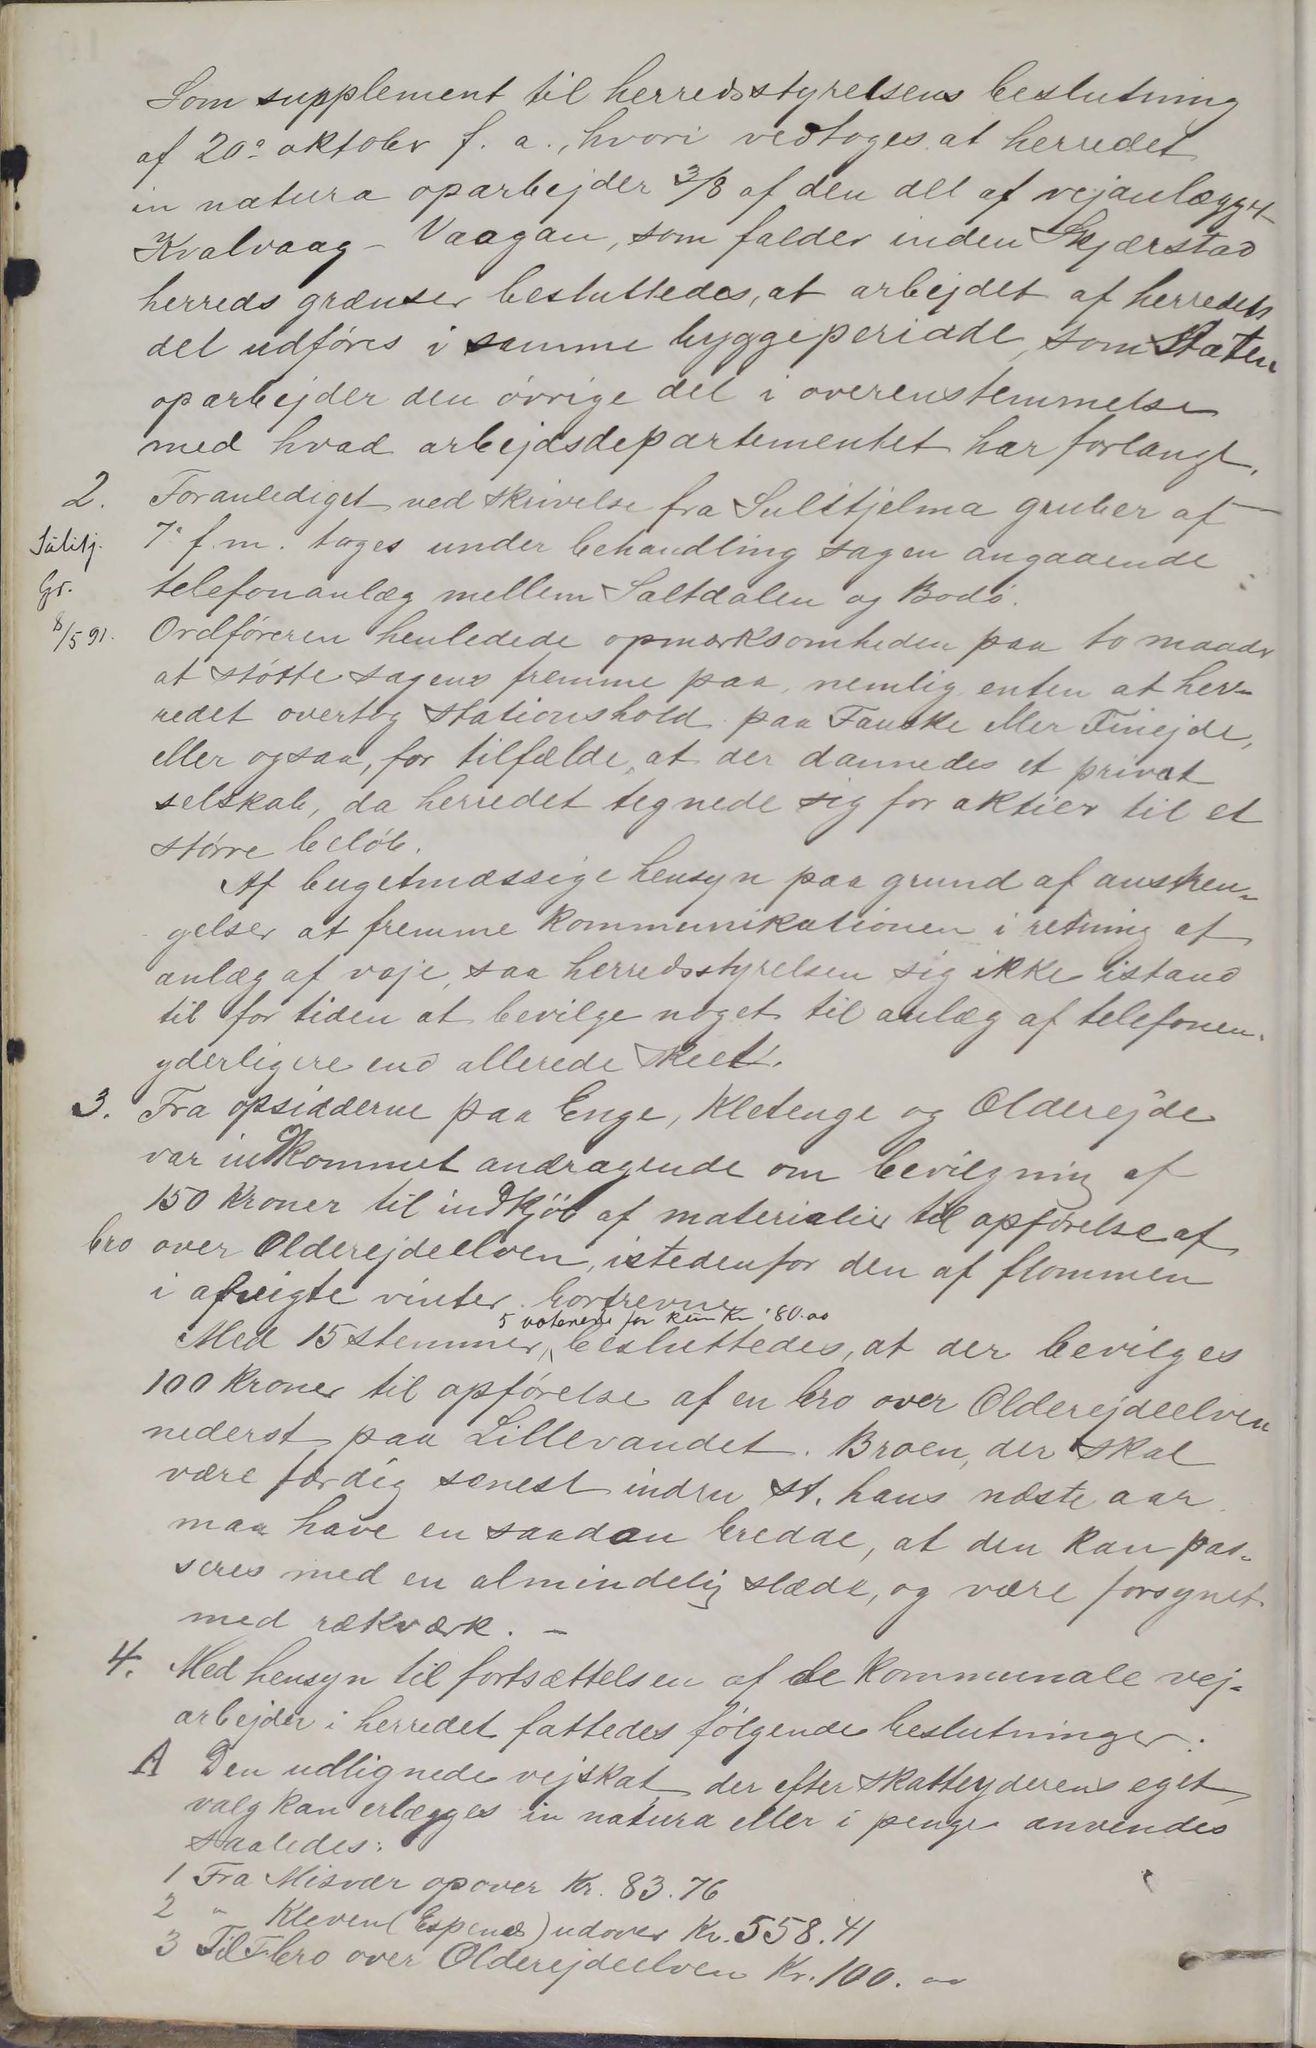 Som supplement til herredsstyrelsens beslutning
af 20de oktober f. a., hvori vedtoges at herredet
in natura oparbejder 3/8 af den del af vejanlægget
Kvalvaag - Vaagan, som falder inden Skjærstad
herreds grænser besluttedes, at arbejdet af herredets
del udføres i samme byggeperiode, som Staten
oparbejder den øvrige del i overenstemmelse
med hvad arbejdsdepartementet har forlangt.
2. Foranlediget ved skrivelse fra Sulitjelma gruber af
Sulitj. Gr. 8/5 91.
7de f. m. toges under behandling sagen angaaende
telefonanlæg mellem Saltdalen og Bodø.
Ordføreren henledede opmærksomheden paa to maader
at støtte sagens fremme paa, nemlig enten at her-
redet overtog stationshold paa Fauske eller Finejde,
eller ogsaa, for tilfælde, at der dannedes et privat
selskab, da herredet tegnede sig for aktier til et
større beløb.
Af bugetmæssige hensyn paa grund af anstren-
gelser at fremme kommunikationen i retning af
anlæg af veje, saa herredsstyrelsen sig ikke istand
til for tiden at bevilge noget til anlæg af telefonen
yderligere end allerede skeet.
3. Fra opsidderne paa Enge, Kletenge og Olderejde
var indkommet andragende om bevilgning af
150 kroner til indkjøb af materialier til opførelse af
bro over Olderejdeelven, istedenfor den af flommen
i afvigte vinter bortrevne.
5 voterede for kun Kr. 80.00
Med 15 stemmer, besluttedes, at der bevilges
100 kroner til opførelse af en bro over Olderejdeelven
nederst paa Lillevandet. Broen, der skal
være færdig senest inden st. hans næste aar
maa have en saadan bredde, at den kan pas-
seres med en almindelig slæde, og være forsynet
med rækværk. -
4. Med hensyn til fortsættelsen af de kommunale vej-
arbejder i herredet fattedes følgende beslutninger:
A Den udlignede vejskat, der efter skatteyderens eget
valg kan erlægges in natura eller i penge anvendes
saaledes:
1 Fra Misvær opover Kr. 83.76
2 " Kleven (Espenes) udover Kr. 558.41
3 Til bro over Olderejdeelven Kr. 100.00